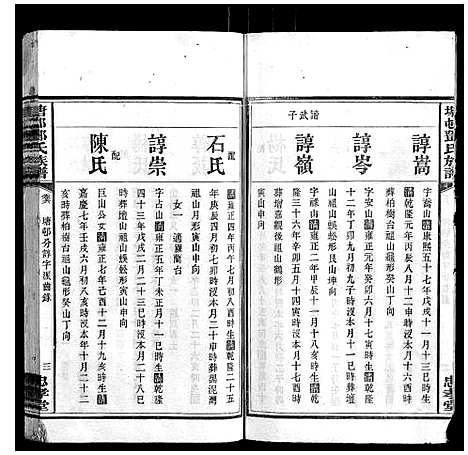 塘邨鄧氏族譜
忠孝堂
諄嵩
字喬山清康熙五十七年戊戌十一月十三巳時生
清乾隆元年丙辰八月十二寅時沒本月十六酉時
葬柏樹台祖山龜形癸山丁向
諄岑
字安山清雍正元年癸卯六月十七寅時生清乾隆
十二年丁卯九月初九子時沒本月十三巳時葬壇
祖山蜈蚣形艮山坤向
諧武子
諄嶺
字祿山清雍正二年甲辰十一月十八亥時生清乾隆
三十六年辛卯五月十四寅時沒本月十六時
葬增嘉觀後祖山鶴形
寅山申向
配
石氏
清雍正四年丙午七月初八時生清乾隆二十五
年庚辰四月初七卯時沒本月十二申時葬泥灣
祖山月形寅山申向
女一 適蘭台
諄崇
字占山清雍正五年丁未十二月十六寅時生清乾隆
四十三年戊戌二月二十八時沒本月二十八
時葬壇山祖山蜈蚣形寅山申向
配
陳氏
巨山公女清雍正七年己酉十二月十九亥時生清
嘉慶七年壬戌六月初八亥時沒本年十月二十二
亥時葬柏樹台祖山龜形癸山丁向
塘邨鄧氏族譜
塘邨分諄字派齒錄
三
忠孝堂